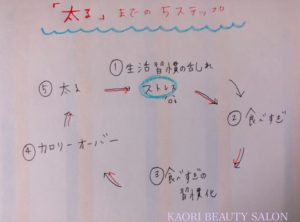 「太る」までの5ステップ
①生活習慣の乱れ
ストレス
②食べすぎ
③食べすぎの
習慣化
④カロリーオーバー
⑤太る
KAORI BEAUTY SALON